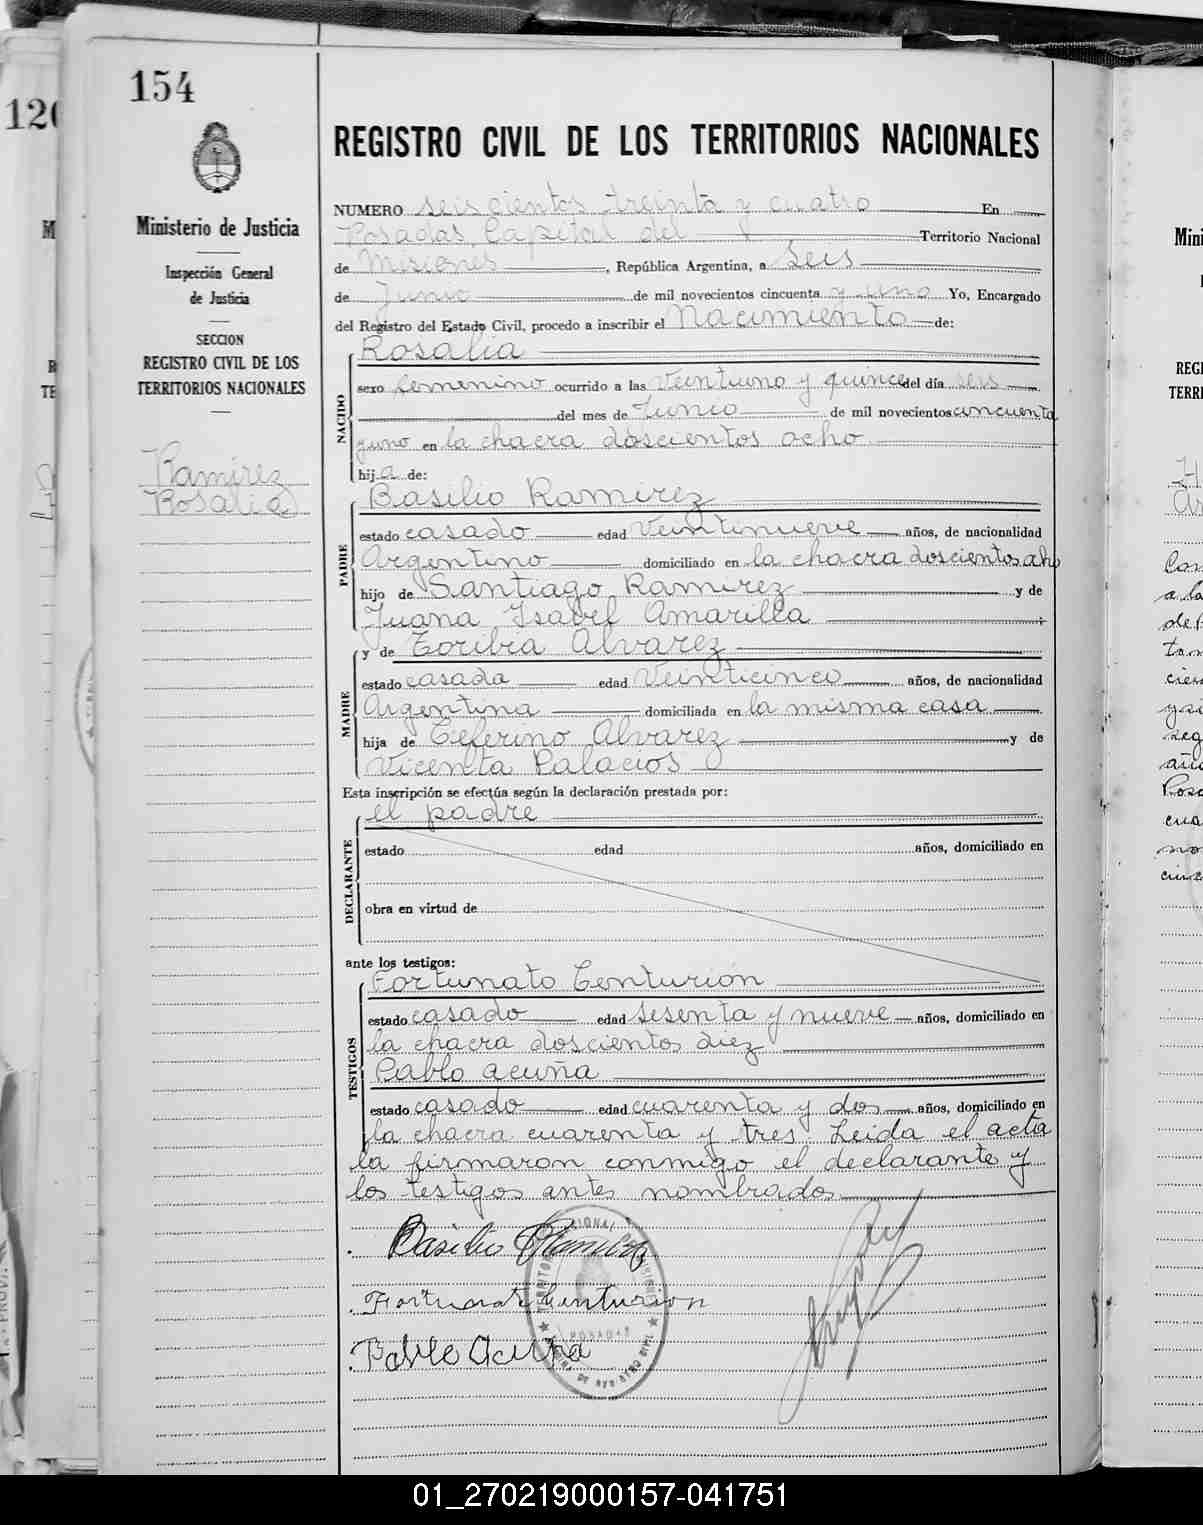 154
120
REGISTRO CIVIL DE LOS TERRITORIOS NACIONALES
Ministerio de Justicia
Inspección General
de Justicia
SECCION
REGISTRO CIVIL DE LOS
TERRITORIOS NACIONALES
Ramirez
Rosalia
NUMERO seiscientos treinta y cuatro En
Posadas, Capital del Territorio Nacional
de Misiones, República Argentina, a Seis
de Junio de mil novecientos cincuenta y uno Yo, Encargado
del Registro del Estado Civil, procedo a inscribir el Nacimiento de:
NACIDO
Rosalia
sexo femenino ocurrido a las veintiuno y quince del día seis
del mes de Junio de mil novecientos cincuenta
y uno en la chacra doscientos ocho
hija de:
PADRE
Basilio Ramirez
estado casado edad veintinueve años, de nacionalidad
Argentino domiciliado en la chacra doscientos ocho
hijo de Santiago Ramirez y de
Juana Isabel Amarilla
y de Toribia Alvarez
MADRE
estado casada edad veinticinco años, de nacionalidad
Argentina domiciliada en la misma casa
hija de Ceferino Alvarez y de
Vicenta Palacios
Esta inscripción se efectúa según la declaración prestada por:
el padre
DECLARANTE
estado edad años, domiciliado en
obra en virtud de
ante los testigos:
TESTIGOS
Fortunato Centurión
estado casado edad sesenta y nueve años, domiciliado en
la chacra doscientos diez
Pablo acuña
estado casado edad cuarenta y dos años, domiciliado en
la chacra cuarenta y tres. Leida el acta
la firmaron conmigo el declarante y
los testigos antes nombrados
Basilio Ramirez
Fortunato Centurion
Pablo Acuña
01_270219000157-041751